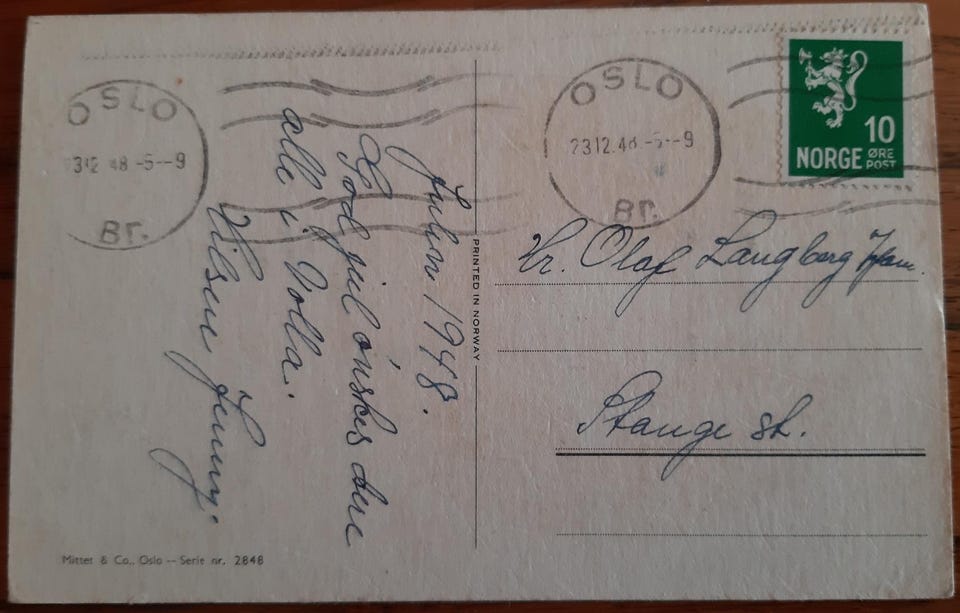 OSLO
23 12 48 -5--9
Br.
OSLO
23 12.48 -5--9
Br.
10
NORGE ØRE POST
Julen 1948.
God jul ønskes dere
alle i Volla.
Hilsen Jenny.
PRINTED IN NORWAY
Hr. Olaf Langberg
Stange st.
Mittet & Co., Oslo -- Serie nr. 2848